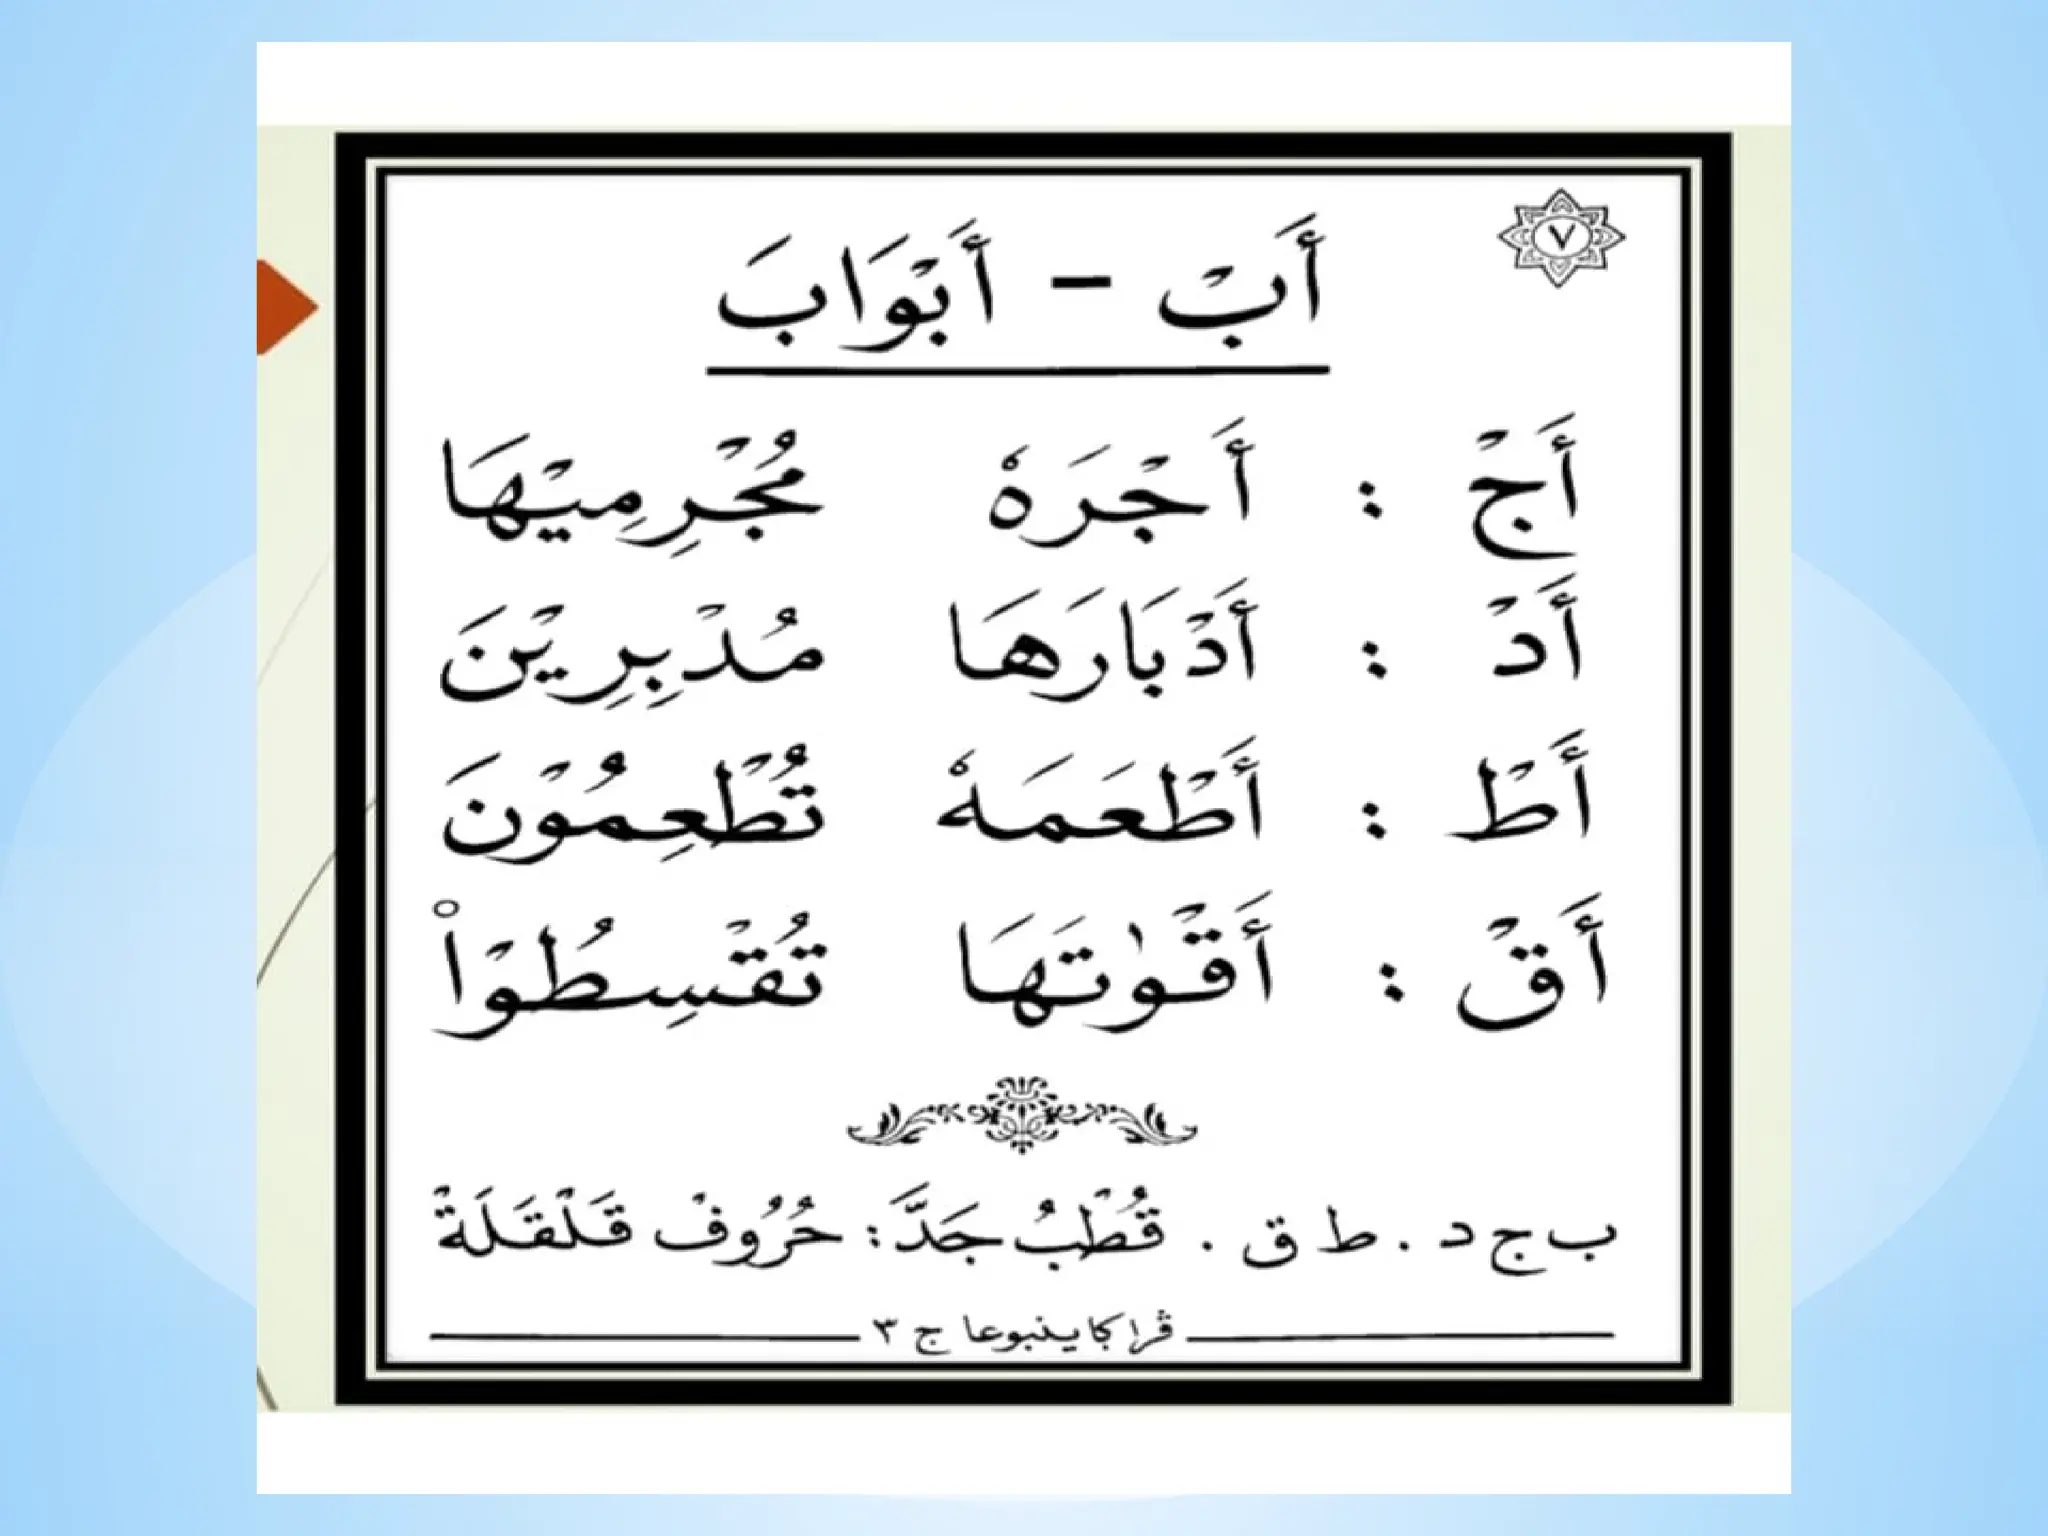 ٧
أَبْ - أَبْوَابَ
أَجْ : أَجْرَهْ مُجْرِمِيْهَا
أَدْ : أَدْبَارَهَا مُدْبِرِيْنَ
أَطْ : أَطْعَمَهْ تُطْعِمُوْنَ
أَقْ : أَقْوٰتَهَا تُقْسِطُوْاْ
ب ج د . ط ق . قُطْبُ جَدَّ : حُرُوفْ قَلْقَلَةْ
ج ٣